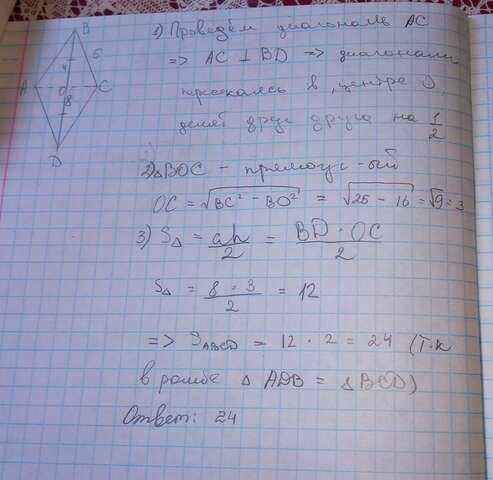 B
5
4
A O C
8
D
1) Проведём диагональ AC
=> AC ⊥ BD => диагонали
пересекаясь в центре O,
делят друг друга на 1/2
2) △BOC - прямоуг-ый
OC = √BC² - BO² = √25 - 16 = √9 = 3
3) S△ = ah/2 = BD · OC/2
S△ = 8 · 3/2 = 12
=> SABCD = 12 · 2 = 24 (т.к
в ромбе △ ADB = △BCD)
Ответ: 24